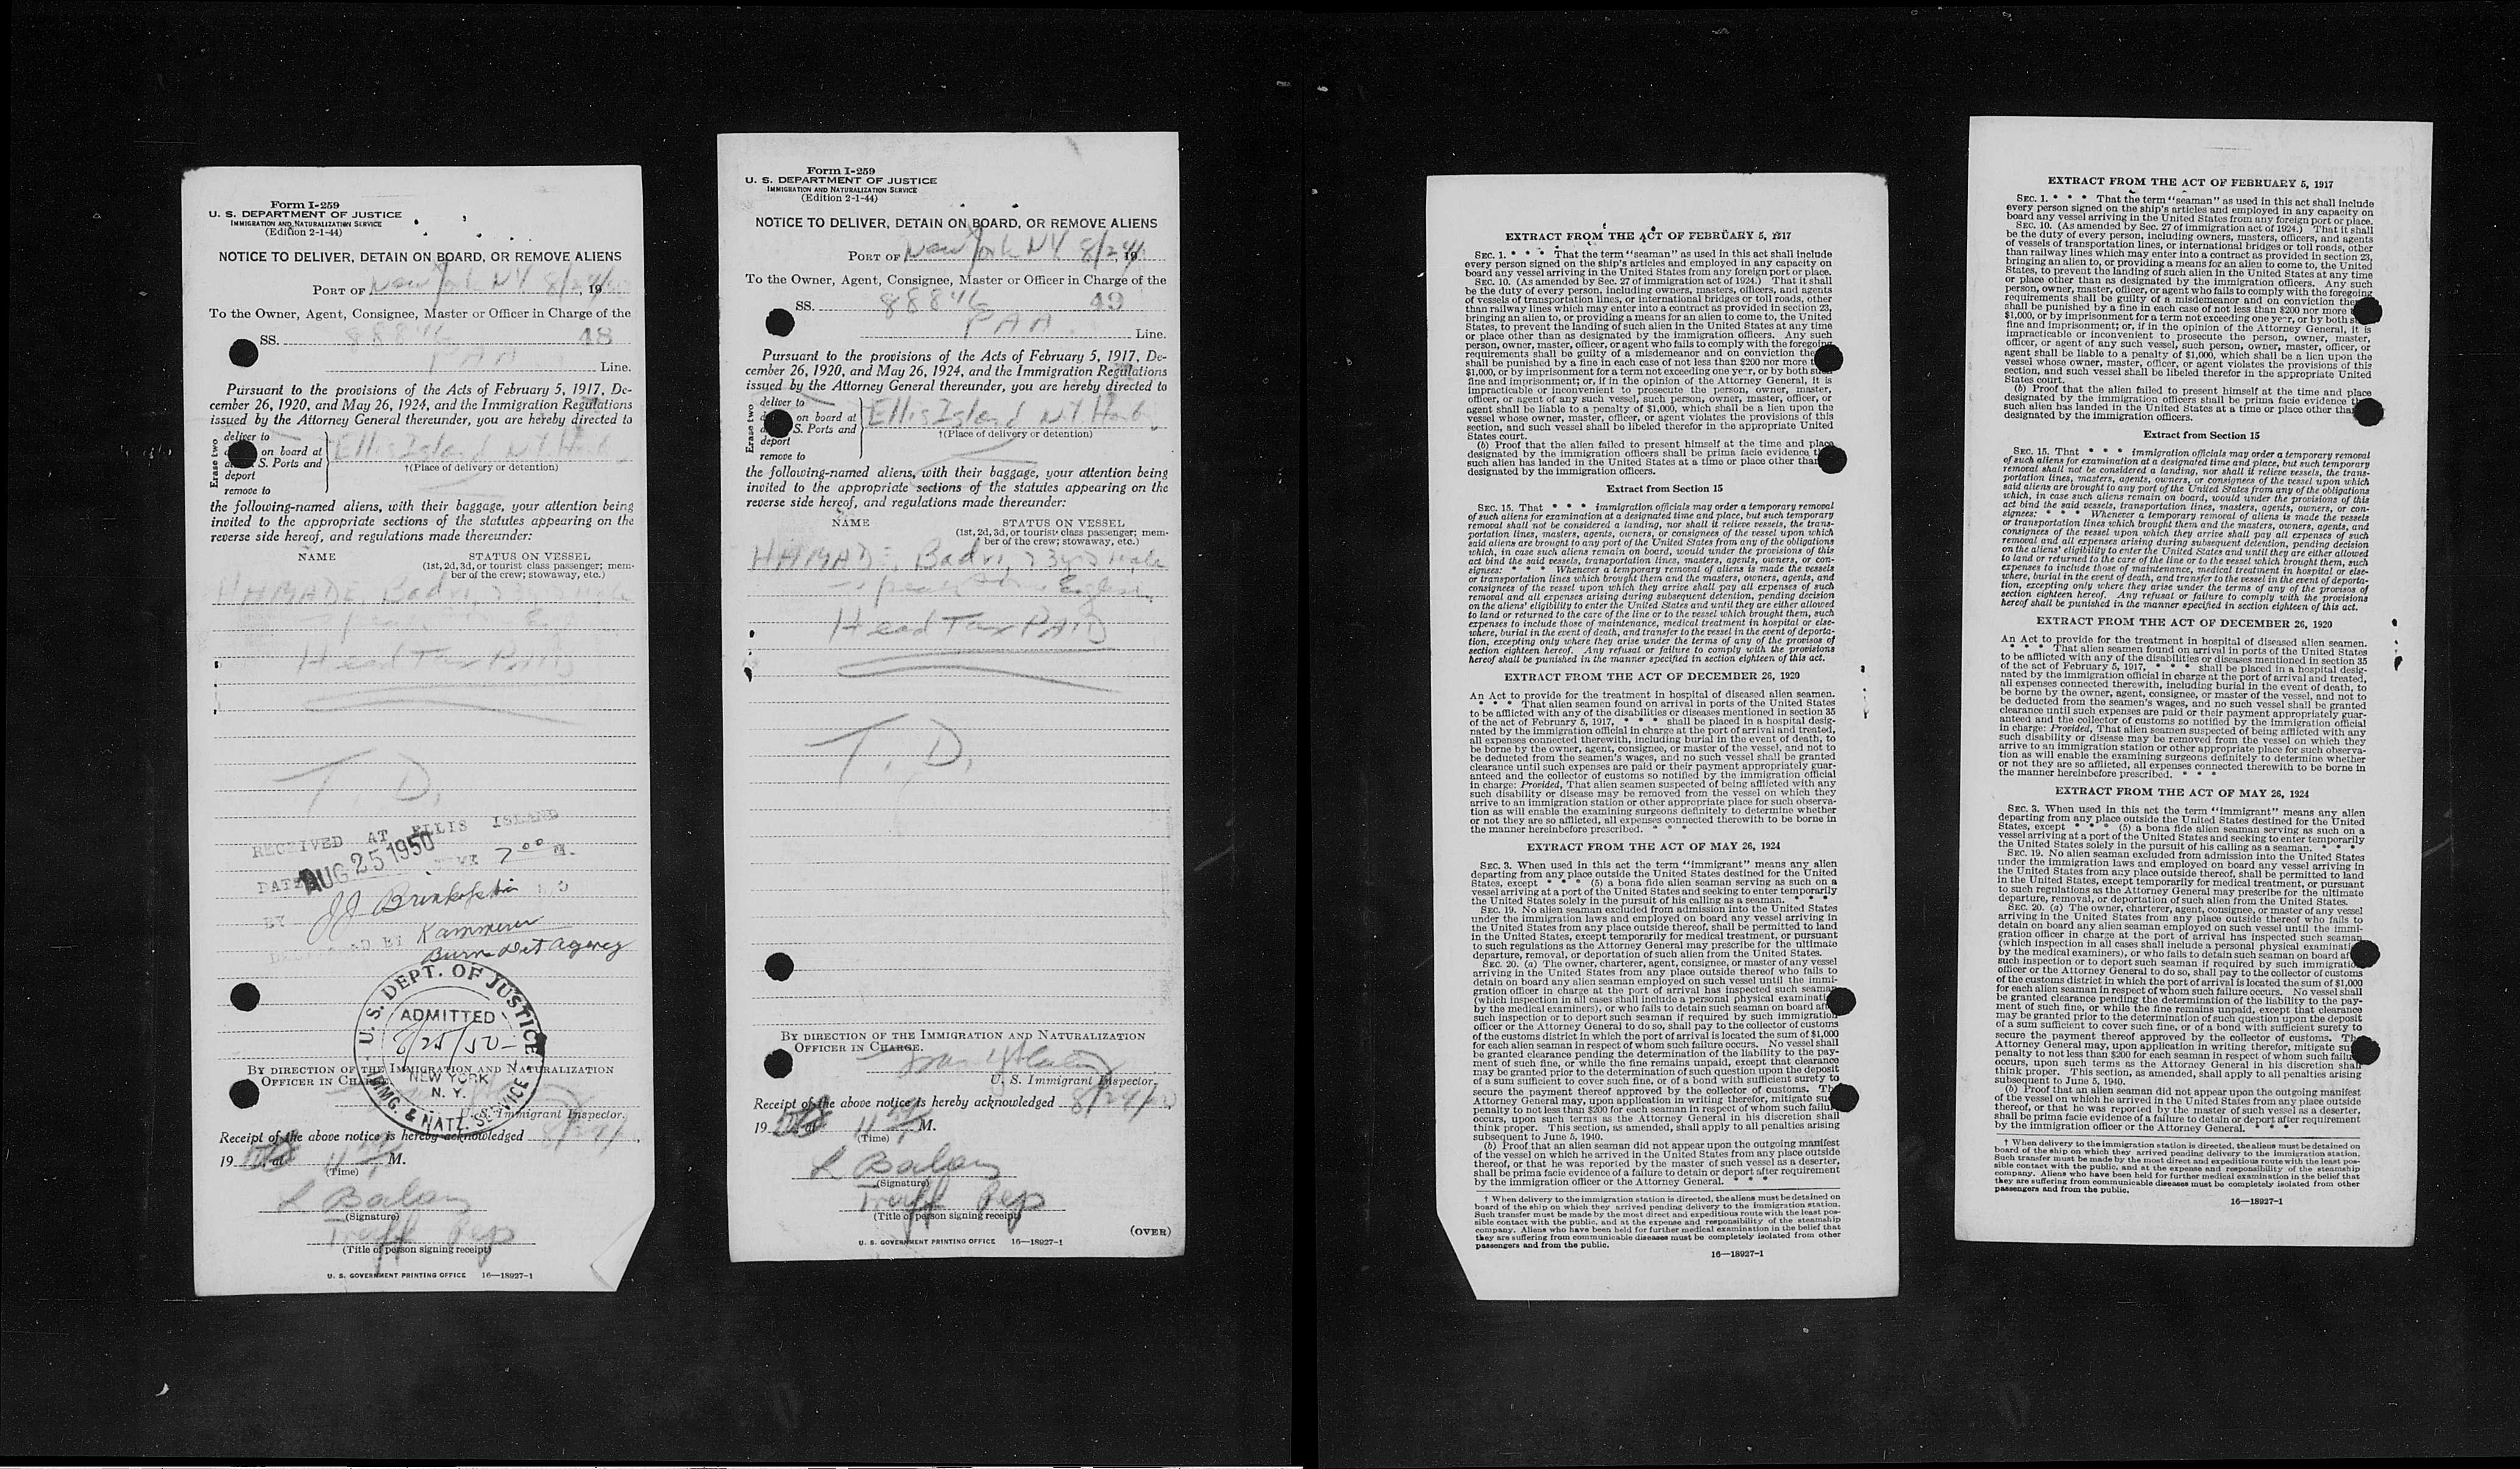 Form I-259
U. S. DEPARTMENT OF JUSTICE
IMMIGRATION AND NATURALIZATION SERVICE
(Edition 2-1-44)
NOTICE TO DELIVER, DETAIN ON BOARD, OR REMOVE ALIENS
PORT OF New York NY 8/24/ , 19
To the Owner, Agent, Consignee, Master or Officer in Charge of the
SS. 88846 48
PAA
Line.
Pursuant to the provisions of the Acts of February 5, 1917, De-
cember 26, 1920, and May 26, 1924, and the Immigration Regulations
issued by the Attorney General thereunder, you are hereby directed to
Erase two
deliver to
on board at
S. Ports and
deport
remove to
Ellis Island NY Harb.
†(Place of delivery or detention)
the following-named aliens, with their baggage, your attention being
invited to the appropriate sections of the statutes appearing on the
reverse side hereof, and regulations made thereunder:
NAME STATUS ON VESSEL
(1st, 2d, 3d, or tourist class passenger; mem-
ber of the crew; stowaway, etc.)
HAMADE Badri, 23 yrs Male
Head Tax PAID
T. D.
RECEIVED AT ELLIS ISLAND
DATE AUG 25 1950 TIME 7 00 M.
BY JJ
BY Kammerer
Burns Det Agency
U. S. DEPT. OF JUSTICE
ADMITTED
8/25/50
NEW YORK
N. Y.
IMMG. & NATZ. SERVICE
BY DIRECTION OF THE IMMIGRATION AND NATURALIZATION
OFFICER IN CHARGE.
U. S. Immigrant Inspector.
Receipt of the above notice is hereby acknowledged 8/24/
19 at 11 M.
(Time)
L Balan
(Signature)
Traff Rep
(Title of person signing receipt)
U. S. GOVERNMENT PRINTING OFFICE 16—18927-1
Form I-259
U. S. DEPARTMENT OF JUSTICE
IMMIGRATION AND NATURALIZATION SERVICE
(Edition 2-1-44)
NOTICE TO DELIVER, DETAIN ON BOARD, OR REMOVE ALIENS
PORT OF New York NY 8/24/ , 19
To the Owner, Agent, Consignee, Master or Officer in Charge of the
SS. 88846 49
PAA
Line.
Pursuant to the provisions of the Acts of February 5, 1917, De-
cember 26, 1920, and May 26, 1924, and the Immigration Regulations
issued by the Attorney General thereunder, you are hereby directed to
Erase two
deliver to
on board at
S. Ports and
deport
remove to
Ellis Island NY Harb.
†(Place of delivery or detention)
the following-named aliens, with their baggage, your attention being
invited to the appropriate sections of the statutes appearing on the
reverse side hereof, and regulations made thereunder:
NAME STATUS ON VESSEL
(1st, 2d, 3d, or tourist class passenger; mem-
ber of the crew; stowaway, etc.)
HAMADE Badri, 23 yrs Male
Head Tax PAID
T. D.
BY DIRECTION OF THE IMMIGRATION AND NATURALIZATION
OFFICER IN CHARGE.
U. S. Immigrant Inspector.
Receipt of the above notice is hereby acknowledged 8/24/50
19 at 11 M.
(Time)
L Balan
(Signature)
Traff Rep
(Title of person signing receipt)
(OVER)
U. S. GOVERNMENT PRINTING OFFICE 16—18927-1
EXTRACT FROM THE ACT OF FEBRUARY 5, 1917
SEC. 1. * * * That the term “seaman” as used in this act shall include
every person signed on the ship's articles and employed in any capacity on
board any vessel arriving in the United States from any foreign port or place.
SEC. 10. (As amended by Sec. 27 of immigration act of 1924.) That it shall
be the duty of every person, including owners, masters, officers, and agents
of vessels of transportation lines, or international bridges or toll roads, other
than railway lines which may enter into a contract as provided in section 23,
bringing an alien to, or providing a means for an alien to come to, the United
States, to prevent the landing of such alien in the United States at any time
or place other than as designated by the immigration officers. Any such
person, owner, master, officer, or agent who fails to comply with the foregoing
requirements shall be guilty of a misdemeanor and on conviction the
shall be punished by a fine in each case of not less than $200 nor more
$1,000, or by imprisonment for a term not exceeding one year, or by both such
fine and imprisonment; or, if in the opinion of the Attorney General, it is
impracticable or inconvenient to prosecute the person, owner, master,
officer, or agent of any such vessel, such person, owner, master, officer, or
agent shall be liable to a penalty of $1,000, which shall be a lien upon the
vessel whose owner, master, officer, or agent violates the provisions of this
section, and such vessel shall be libeled therefor in the appropriate United
States court.
(b) Proof that the alien failed to present himself at the time and place
designated by the immigration officers shall be prima facie evidence
such alien has landed in the United States at a time or place other than
designated by the immigration officers.
Extract from Section 15
SEC. 15. That * * * immigration officials may order a temporary removal
of such aliens for examination at a designated time and place, but such temporary
removal shall not be considered a landing, nor shall it relieve vessels, the trans-
portation lines, masters, agents, owners, or consignees of the vessel upon which
said aliens are brought to any port of the United States from any of the obligations
which, in case such aliens remain on board, would under the provisions of this
act bind the said vessels, transportation lines, masters, agents, owners, or con-
signees: * * * Whenever a temporary removal of aliens is made the vessels
or transportation lines which brought them and the masters, owners, agents, and
consignees of the vessel upon which they arrive shall pay all expenses of such
removal and all expenses arising during subsequent detention, pending decision
on the aliens' eligibility to enter the United States and until they are either allowed
to land or returned to the care of the line or to the vessel which brought them, such
expenses to include those of maintenance, medical treatment in hospital or else-
where, burial in the event of death, and transfer to the vessel in the event of deporta-
tion, excepting only where they arise under the terms of any of the provisos of
section eighteen hereof. Any refusal or failure to comply with the provisions
hereof shall be punished in the manner specified in section eighteen of this act.
EXTRACT FROM THE ACT OF DECEMBER 26, 1920
An Act to provide for the treatment in hospital of diseased alien seamen.
* * * That alien seamen found on arrival in ports of the United States
to be afflicted with any of the disabilities or diseases mentioned in section 35
of the act of February 5, 1917, * * * shall be placed in a hospital desig-
nated by the immigration official in charge at the port of arrival and treated,
all expenses connected therewith, including burial in the event of death, to
be borne by the owner, agent, consignee, or master of the vessel, and not to
be deducted from the seamen's wages, and no such vessel shall be granted
clearance until such expenses are paid or their payment appropriately guar-
anteed and the collector of customs so notified by the immigration official
in charge: Provided, That alien seamen suspected of being afflicted with any
such disability or disease may be removed from the vessel on which they
arrive to an immigration station or other appropriate place for such observa-
tion as will enable the examining surgeons definitely to determine whether
or not they are so afflicted, all expenses connected therewith to be borne in
the manner hereinbefore prescribed. * * *
EXTRACT FROM THE ACT OF MAY 26, 1924
SEC. 3. When used in this act the term “immigrant” means any alien
departing from any place outside the United States destined for the United
States, except * * * (5) a bona fide alien seaman serving as such on a
vessel arriving at a port of the United States and seeking to enter temporarily
the United States solely in the pursuit of his calling as a seaman. * * *
SEC. 19. No alien seaman excluded from admission into the United States
under the immigration laws and employed on board any vessel arriving in
the United States from any place outside thereof, shall be permitted to land
in the United States, except temporarily for medical treatment, or pursuant
to such regulations as the Attorney General may prescribe for the ultimate
departure, removal, or deportation of such alien from the United States.
SEC. 20. (a) The owner, charterer, agent, consignee, or master of any vessel
arriving in the United States from any place outside thereof who fails to
detain on board any alien seaman employed on such vessel until the immi-
gration officer in charge at the port of arrival has inspected such seaman
(which inspection in all cases shall include a personal physical examination
by the medical examiners), or who fails to detain such seaman on board after
such inspection or to deport such seaman if required by such immigration
officer or the Attorney General to do so, shall pay to the collector of customs
of the customs district in which the port of arrival is located the sum of $1,000
for each alien seaman in respect of whom such failure occurs. No vessel shall
be granted clearance pending the determination of the liability to the pay-
ment of such fine, or while the fine remains unpaid, except that clearance
may be granted prior to the determination of such question upon the deposit
of a sum sufficient to cover such fine, or of a bond with sufficient surety to
secure the payment thereof approved by the collector of customs. The
Attorney General may, upon application in writing therefor, mitigate such
penalty to not less than $200 for each seaman in respect of whom such failure
occurs, upon such terms as the Attorney General in his discretion shall
think proper. This section, as amended, shall apply to all penalties arising
subsequent to June 5, 1940.
(b) Proof that an alien seaman did not appear upon the outgoing manifest
of the vessel on which he arrived in the United States from any place outside
thereof, or that he was reported by the master of such vessel as a deserter,
shall be prima facie evidence of a failure to detain or deport after requirement
by the immigration officer or the Attorney General. * * * *
† When delivery to the immigration station is directed, the aliens must be detained on
board of the ship on which they arrived pending delivery to the immigration station.
Such transfer must be made by the most direct and expeditious route with the least pos-
sible contact with the public, and at the expense and responsibility of the steamship
company. Aliens who have been held for further medical examination in the belief that
they are suffering from communicable diseases must be completely isolated from other
passengers and from the public.
16—18927-1
EXTRACT FROM THE ACT OF FEBRUARY 5, 1917
SEC. 1. * * * That the term “seaman” as used in this act shall include
every person signed on the ship's articles and employed in any capacity on
board any vessel arriving in the United States from any foreign port or place.
SEC. 10. (As amended by Sec. 27 of immigration act of 1924.) That it shall
be the duty of every person, including owners, masters, officers, and agents
of vessels of transportation lines, or international bridges or toll roads, other
than railway lines which may enter into a contract as provided in section 23,
bringing an alien to, or providing a means for an alien to come to, the United
States, to prevent the landing of such alien in the United States at any time
or place other than as designated by the immigration officers. Any such
person, owner, master, officer, or agent who fails to comply with the foregoing
requirements shall be guilty of a misdemeanor and on conviction
shall be punished by a fine in each case of not less than $200 nor more
$1,000, or by imprisonment for a term not exceeding one year, or by both
fine and imprisonment; or, if in the opinion of the Attorney General, it is
impracticable or inconvenient to prosecute the person, owner, master,
officer, or agent of any such vessel, such person, owner, master, officer, or
agent shall be liable to a penalty of $1,000, which shall be a lien upon the
vessel whose owner, master, officer, or agent violates the provisions of this
section, and such vessel shall be libeled therefor in the appropriate United
States court.
(b) Proof that the alien failed to present himself at the time and place
designated by the immigration officers shall be prima facie evidence
such alien has landed in the United States at a time or place other than
designated by the immigration officers.
Extract from Section 15
SEC. 15. That * * * immigration officials may order a temporary removal
of such aliens for examination at a designated time and place, but such temporary
removal shall not be considered a landing, nor shall it relieve vessels, the trans-
portation lines, masters, agents, owners, or consignees of the vessel upon which
said aliens are brought to any port of the United States from any of the obligations
which, in case such aliens remain on board, would under the provisions of this
act bind the said vessels, transportation lines, masters, agents, owners, or con-
signees: * * * Whenever a temporary removal of aliens is made the vessels
or transportation lines which brought them and the masters, owners, agents, and
consignees of the vessel upon which they arrive shall pay all expenses of such
removal and all expenses arising during subsequent detention, pending decision
on the aliens' eligibility to enter the United States and until they are either allowed
to land or returned to the care of the line or to the vessel which brought them, such
expenses to include those of maintenance, medical treatment in hospital or else-
where, burial in the event of death, and transfer to the vessel in the event of deporta-
tion, excepting only where they arise under the terms of any of the provisos of
section eighteen hereof. Any refusal or failure to comply with the provisions
hereof shall be punished in the manner specified in section eighteen of this act.
EXTRACT FROM THE ACT OF DECEMBER 26, 1920
An Act to provide for the treatment in hospital of diseased alien seamen.
* * * That alien seamen found on arrival in ports of the United States
to be afflicted with any of the disabilities or diseases mentioned in section 35
of the act of February 5, 1917, * * * shall be placed in a hospital desig-
nated by the immigration official in charge at the port of arrival and treated,
all expenses connected therewith, including burial in the event of death, to
be borne by the owner, agent, consignee, or master of the vessel, and not to
be deducted from the seamen's wages, and no such vessel shall be granted
clearance until such expenses are paid or their payment appropriately guar-
anteed and the collector of customs so notified by the immigration official
in charge: Provided, That alien seamen suspected of being afflicted with any
such disability or disease may be removed from the vessel on which they
arrive to an immigration station or other appropriate place for such observa-
tion as will enable the examining surgeons definitely to determine whether
or not they are so afflicted, all expenses connected therewith to be borne in
the manner hereinbefore prescribed. * * *
EXTRACT FROM THE ACT OF MAY 26, 1924
SEC. 3. When used in this act the term “immigrant” means any alien
departing from any place outside the United States destined for the United
States, except * * * (5) a bona fide alien seaman serving as such on a
vessel arriving at a port of the United States and seeking to enter temporarily
the United States solely in the pursuit of his calling as a seaman. * * *
SEC. 19. No alien seaman excluded from admission into the United States
under the immigration laws and employed on board any vessel arriving in
the United States from any place outside thereof, shall be permitted to land
in the United States, except temporarily for medical treatment, or pursuant
to such regulations as the Attorney General may prescribe for the ultimate
departure, removal, or deportation of such alien from the United States.
SEC. 20. (a) The owner, charterer, agent, consignee, or master of any vessel
arriving in the United States from any place outside thereof who fails to
detain on board any alien seaman employed on such vessel until the immi-
gration officer in charge at the port of arrival has inspected such seaman
(which inspection in all cases shall include a personal physical examination
by the medical examiners), or who fails to detain such seaman on board after
such inspection or to deport such seaman if required by such immigration
officer or the Attorney General to do so, shall pay to the collector of customs
of the customs district in which the port of arrival is located the sum of $1,000
for each alien seaman in respect of whom such failure occurs. No vessel shall
be granted clearance pending the determination of the liability to the pay-
ment of such fine, or while the fine remains unpaid, except that clearance
may be granted prior to the determination of such question upon the deposit
of a sum sufficient to cover such fine, or of a bond with sufficient surety to
secure the payment thereof approved by the collector of customs. The
Attorney General may, upon application in writing therefor, mitigate such
penalty to not less than $200 for each seaman in respect of whom such failure
occurs, upon such terms as the Attorney General in his discretion shall
think proper. This section, as amended, shall apply to all penalties arising
subsequent to June 5, 1940.
(b) Proof that an alien seaman did not appear upon the outgoing manifest
of the vessel on which he arrived in the United States from any place outside
thereof, or that he was reported by the master of such vessel as a deserter,
shall be prima facie evidence of a failure to detain or deport after requirement
by the immigration officer or the Attorney General. * * *
† When delivery to the immigration station is directed, the aliens must be detained on
board of the ship on which they arrived pending delivery to the immigration station.
Such transfer must be made by the most direct and expeditious route with the least pos-
sible contact with the public, and at the expense and responsibility of the steamship
company. Aliens who have been held for further medical examination in the belief that
they are suffering from communicable diseases must be completely isolated from other
passengers and from the public.
16—18927-1